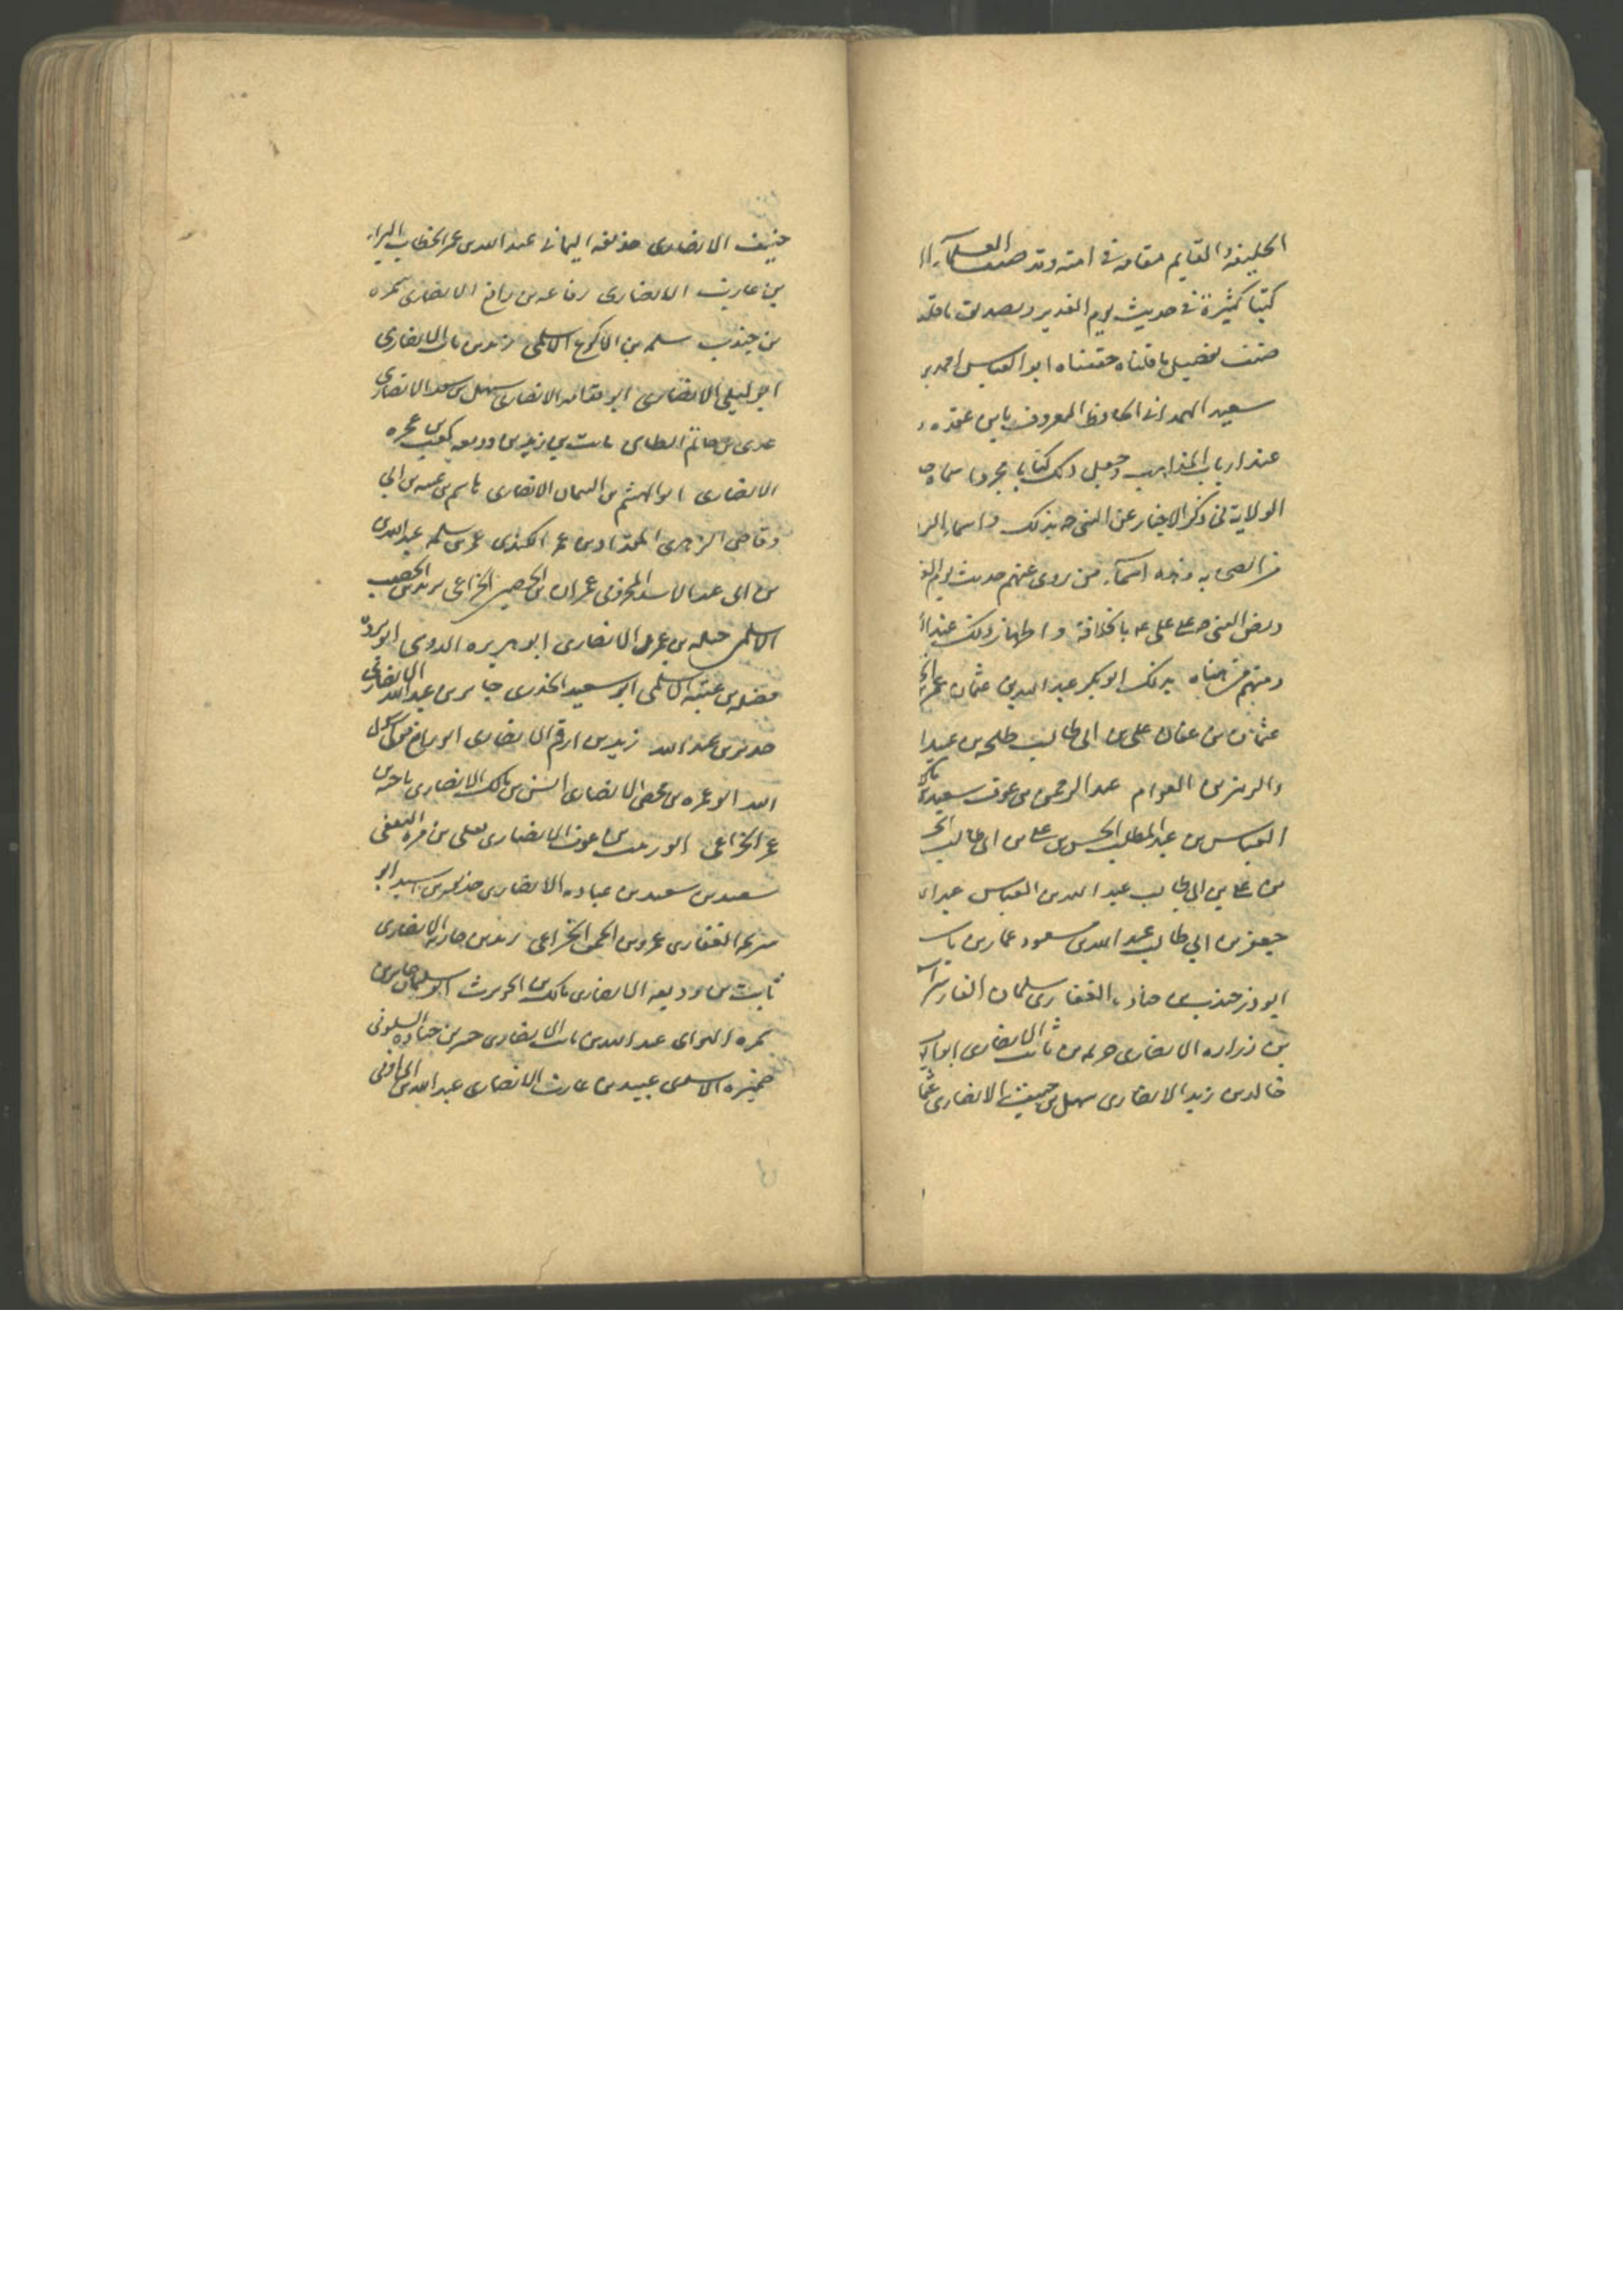 الخليفة والقايم مقامه في امته وقد صنف العلماء
كتبا كثيرة في حديث يوم الغدير وتصديق ما قلناه
صنف تفصيل ما قلناه حققناه ابو العباس احمد بن
سعيد الهمداني الحافظ المعروف بابن عقده
عند ارباب المذاهب وجعل ذلك كتابا مجردا سماه
الولاية في ذكر الاخبار عن النبي صه بذلك واسماء
من الصحابه وهذه اسماء من روى عنهم حديث يوم
ونص النبي ص على علي ع بالخلافة واظهار ذلك عند
ومنهم من هناه بذلك ابو بكر عبد الله بن عثمان عمر بن
عثمان بن عفان علي بن ابي طالب طلحه بن عبيد
والزبير بن العوام عبد الرحمن بن عوف سعيد بن
العباس بن عبد المطلب الحسن بن علي بن ابي طالب
بن علي بن ابي طالب عبد الله بن العباس عبد
جعفر بن ابي طالب عبد الله بن مسعود عمار بن
ابوذر جندب بن جناده الغفاري سلمان الفارسي
بن زراره الانصاري خزيمه بن ثابت الانصاري ابو
خالد بن زيد الانصاري سهل بن حنيف الانصاري
حنيف الانصاري حذيفه اليماني عبد الله بن عمر الخطاب البراء
بن عازب الانصاري رفاعه بن رافع الانصاري سمره
بن جندب سلمه بن الاكوع الاسلمي زيد بن ثابت الانصاري
ابو ليلى الانصاري ابو قدامه الانصاري سهل بن سعد الانصاري
عدى بن حاتم الطاى ثابت بن زيد بن وديعه كعب بن عجره
الانصارى ابو الهيثم بن التيهان الانصارى هاشم بن عتبه بن ابي
وقاص الزهرى المقداد بن عمر الكندى عمر بن سلمه عبد الله
بن ابى عبد الاسد المخزومى عمران بن الحصين الخزاعى بريده بن الحصيب
الاسلمى جبله بن عمرو الانصارى ابو هريره الدوسى ابو برزه
فضله بن عتبه الاسلمى ابو سعيد الخدرى جابر بن عبد الله الانصاري
جرير بن عبد الله زيد بن ارقم الانصارى ابو رافع
ابو عمره بن محصن الانصارى انس بن مالك الانصارى ناجيه بن
عمر الخزاعى ابو زينب بن عوف الانصارى يعلى بن مره الثقفى
سعيد بن سعيد بن عباده الانصارى حذيفه بن اسيد ابو
سريحه الغفارى عمرو بن الحمق الخزاعى زيد بن حارثه الانصارى
ثابت بن وديعه الانصارى مالك بن الحويرث ابو سليمان جابر بن
سمره السواى عبد الله بن ثابت الانصارى حبشى بن جناده السلولى
ضميره الاسدى عبيد بن عازب الانصارى عبد الله بن ابى اوفى